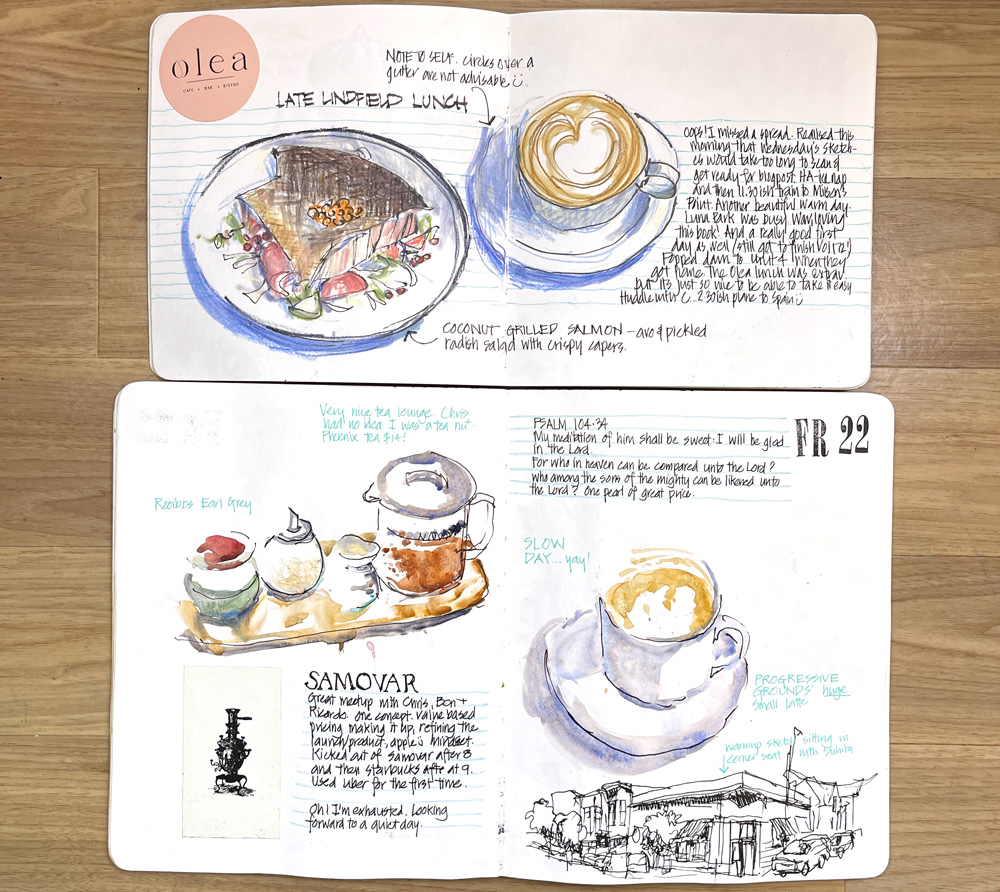 olea
CAFE • BAR • BISTRO
NOTE TO SELF. circles over a
gutter are not advisable
LATE LINDFIELD LUNCH
Oops! I missed a spread. Realised this
morning that Wednesday's sketch-
es would take too long to scan &
got ready for blogpost. HA-ke nap
and then 11.30 ish train to Milson's
Point. Another beautiful warm day.
Luna Park was busy. Way loving
this book! And a really good first
day as well (still got to finish Vol 172!)
Popped down to Unit 4 when they
got home. The Olea lunch was extrav
but it's just so nice to be able to take it easy
Huddle mtn 2.30ish plane to Spain
COCONUT GRILLED SALMON - avo & pickled
radish salad with crispy capers.
Very nice tea lounge. Chris
had no idea I was a tea nut.
Phoenix Tea $14!
Rooibos Earl Grey
SAMOVAR
Great meetup with Chris, Bon +
Ricardo. One concept. Value based
pricing, making it up, refining the
launch/product, apple's mindset.
Kicked out of Samovar after 8
and then Starbucks after at 9.
Used Uber for the first time.
Oh! I'm exhausted. Looking
forward to a quiet day.
PSALM 104:34
My meditation of him shall be sweet: I will be glad
in the Lord.
For who in heaven can be compared unto the Lord?
who among the sons of the mighty can be likened unto
the Lord? One pearl of great price.
FR 22
SLOW
DAY... yay!
PROGRESSIVE
GROUNDS' huge
small latte
warmup sketch sitting in
corner seat with Suhita